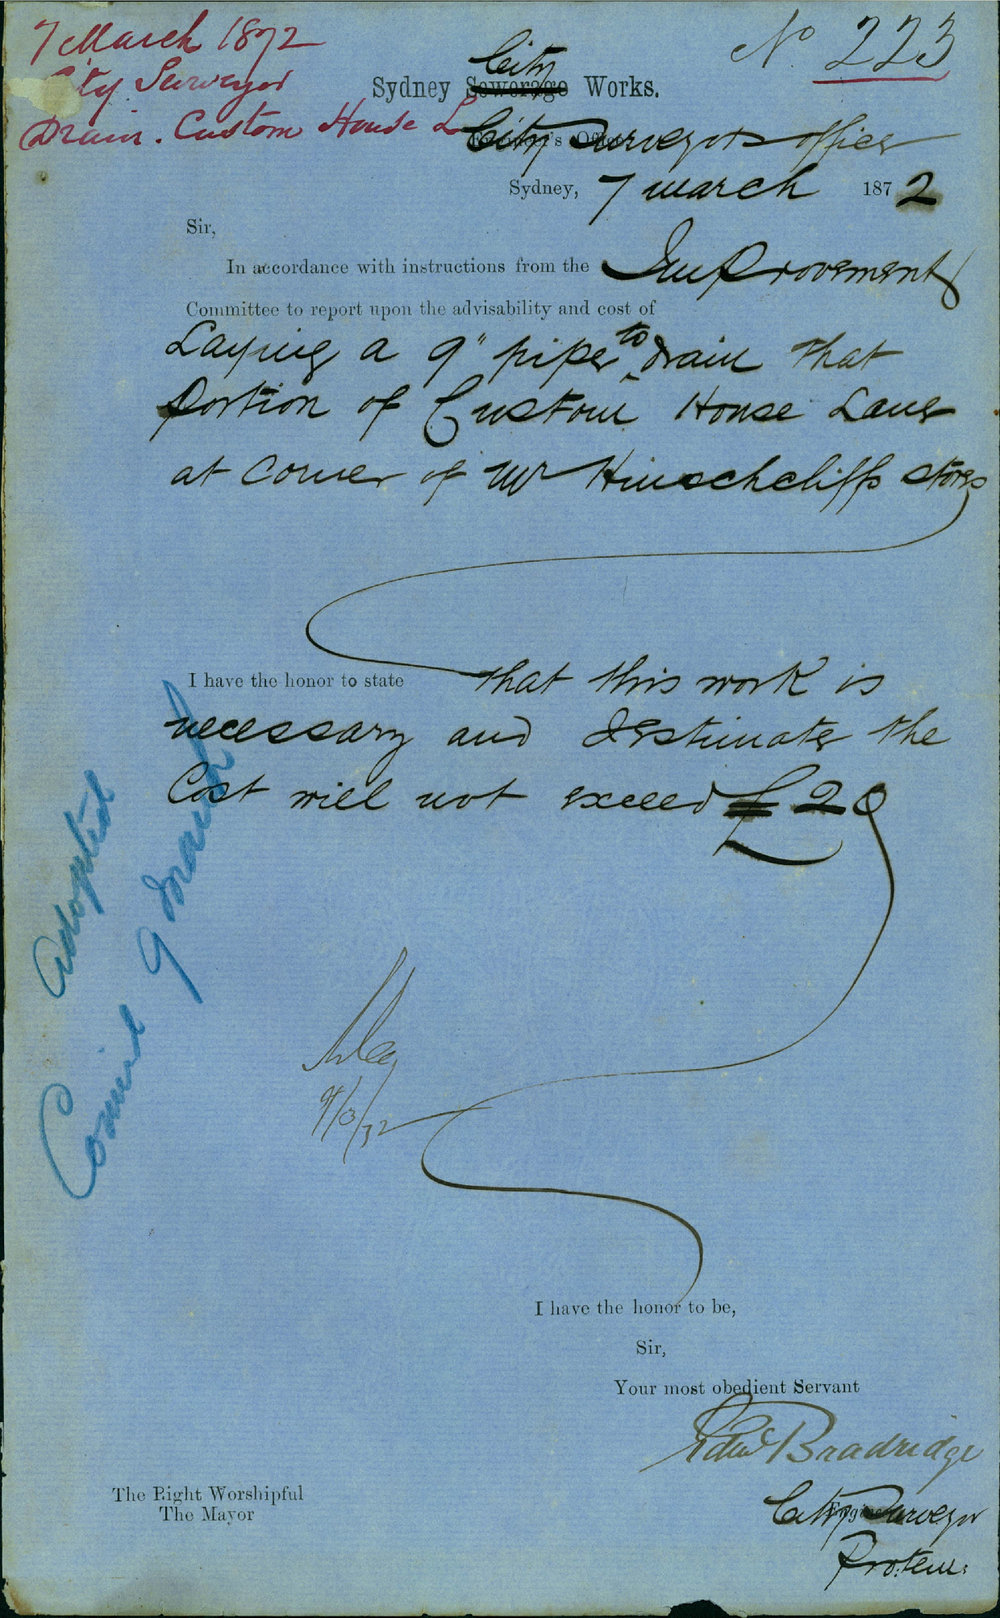 7 March 1872
City Surveyor
Drain. Custom House L
No 223
City
Sydney Sewerage Works.
City Surveyors office
Sydney, 7 march 1872
Sir,
In accordance with instructions from the Improvement
Committee to report upon the advisability and cost of
Laying a 9" pipe to drain that
portion of Custom House Lane
at corner of Mr Hinschcliffs stores
I have the honor to state that this work is
necessary and I estimate the
Cost will not exceed £20
Adopted
Council 9 March
9/3/72
I have the honor to be,
Sir,
Your most obedient Servant
Edwd Bradridge
City Surveyor
Protem:
The Right Worshipful
The Mayor